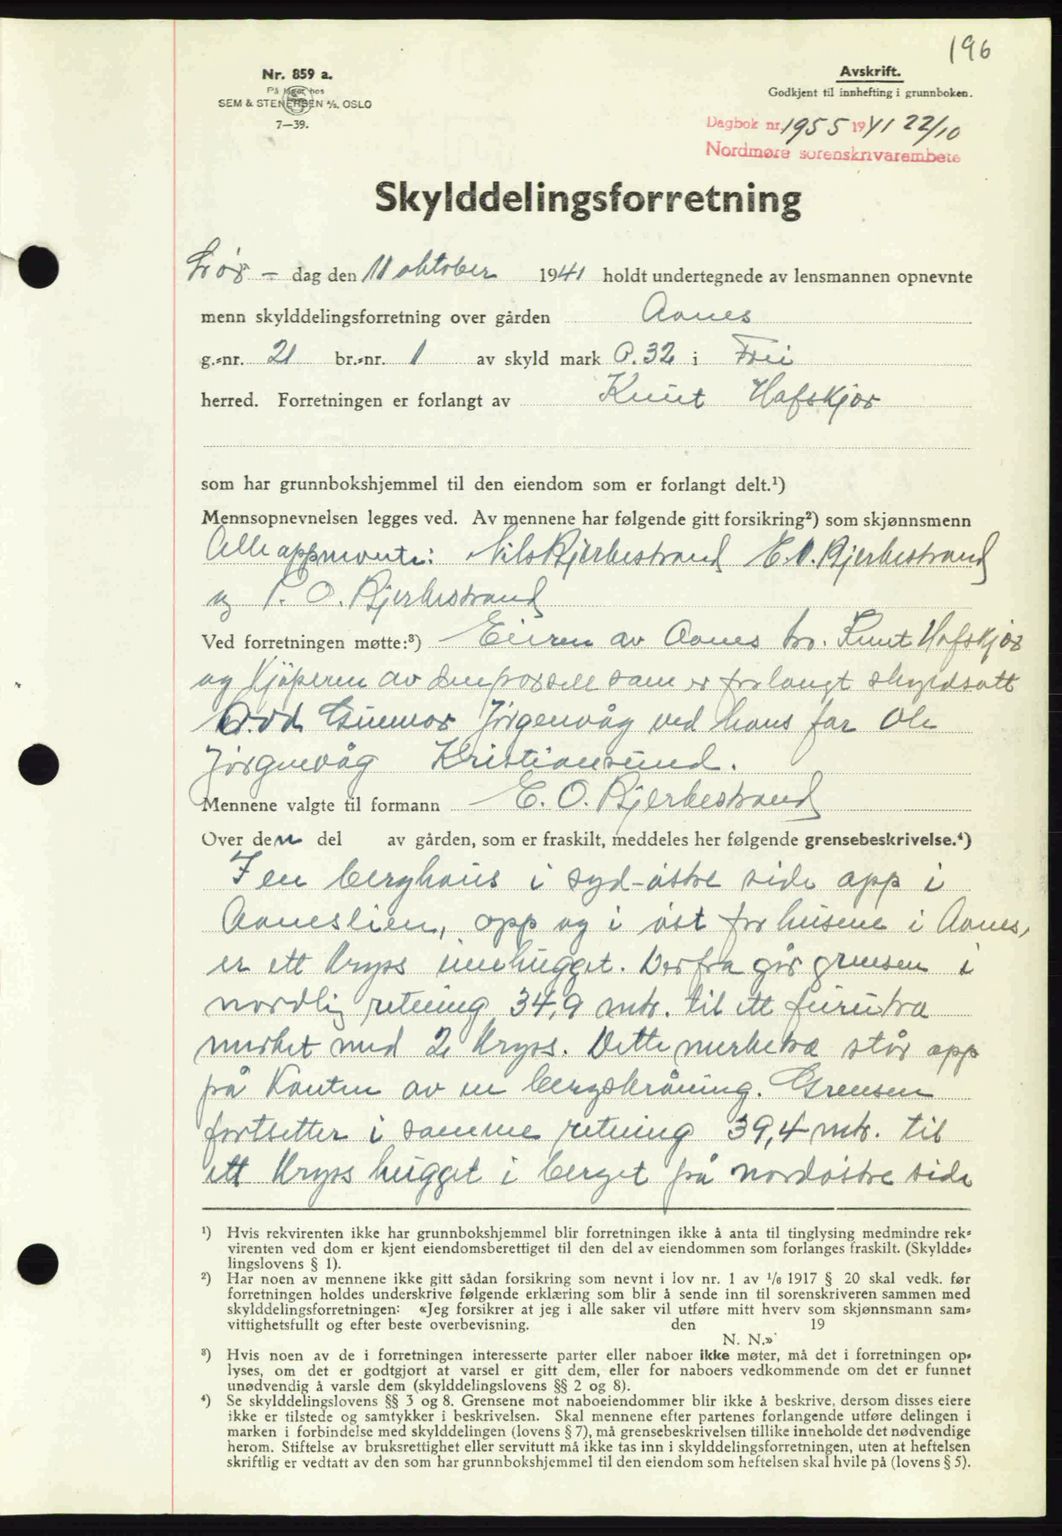 196
Nr. 859 a.
På lager hos
SEM & STENERSEN A/S. OSLO
7—39.
Avskrift.
Godkjent til innhefting i grunnboken.
Dagbok nr. 1955 1941 22/10
Nordmøre sorenskrivarembete
Skylddelingsforretning
Lør - dag den 11 oktober 1941 holdt undertegnede av lensmannen opnevnte
menn skylddelingsforretning over gården Aanes
g.-nr. 21 br.-nr. 1 av skyld mark 0.32 i Frei
herred. Forretningen er forlangt av Knut Hafskjør
som har grunnbokshjemmel til den eiendom som er forlangt delt.¹)
Mennsopnevnelsen legges ved. Av mennene har følgende gitt forsikring²) som skjønnsmenn
Alle oppnevnte: Nils Bjerkestrand E. O. Bjerkestrand
og P. O. Bjerkestrand
Ved forretningen møtte:³) Eieren av Aanes br. Knut Hafskjør
og Kjøperen av den parsell som er forlangt skyldsatt
Odd Gunnar Jørgenvåg ved hans far Ole
Jørgenvåg Kristiansund.
Mennene valgte til formann E. O. Bjerkestrand
Over den del av gården, som er fraskilt, meddeles her følgende grensebeskrivelse.⁴)
I en berghaus i syd-østre side opp i
Aaneslien, opp og i øst for husene i Aanes,
er ett kryss innhugget. Derfra går grensen i
nordlig retning 34,9 mtr. til ett furutre
merket med 2 kryss. Dette merketre står opp
på Kanten av en bergskråning. Grensen
fortsetter i samme retning 39,4 mtr. til
ett kryss hugget i berget på nordøstre side
¹) Hvis rekvirenten ikke har grunnbokshjemmel blir forretningen ikke å anta til tinglysing medmindre rek-
virenten ved dom er kjent eiendomsberettiget til den del av eiendommen som forlanges fraskilt. (Skyldde-
lingslovens § 1).
²) Har noen av mennene ikke gitt sådan forsikring som nevnt i lov nr. 1 av 1/6 1917 § 20 skal vedk. før
forretningen holdes underskrive følgende erklæring som blir å sende inn til sorenskriveren sammen med
skylddelingsforretningen: «Jeg forsikrer at jeg i alle saker vil utføre mitt hverv som skjønnsmann sam-
vittighetsfullt og efter beste overbevisning. den 19
N. N.»
³) Hvis noen av de i forretningen interesserte parter eller naboer ikke møter, må det i forretningen op-
lyses, om det er godtgjort at varsel er gitt dem, eller for naboers vedkommende om det er funnet
unødvendig å varsle dem (skylddelingslovens §§ 2 og 8).
⁴) Se skylddelingslovens §§ 3 og 8. Grensene mot naboeiendommer blir ikke å beskrive, dersom disses eiere
ikke er tilstede og samtykker i beskrivelsen. Skal mennene efter partenes forlangende utføre delingen i
marken i forbindelse med skylddelingen (lovens § 7), må grensebeskrivelsen tillike inneholde det nødvendige
herom. Stiftelse av bruksrettighet eller servitutt må ikke tas inn i skylddelingsforretningen, uten at heftelsen
skriftlig er vedtatt av den som har grunnbokshjemmel til den eiendom som heftelsen skal hvile på (lovens § 5).